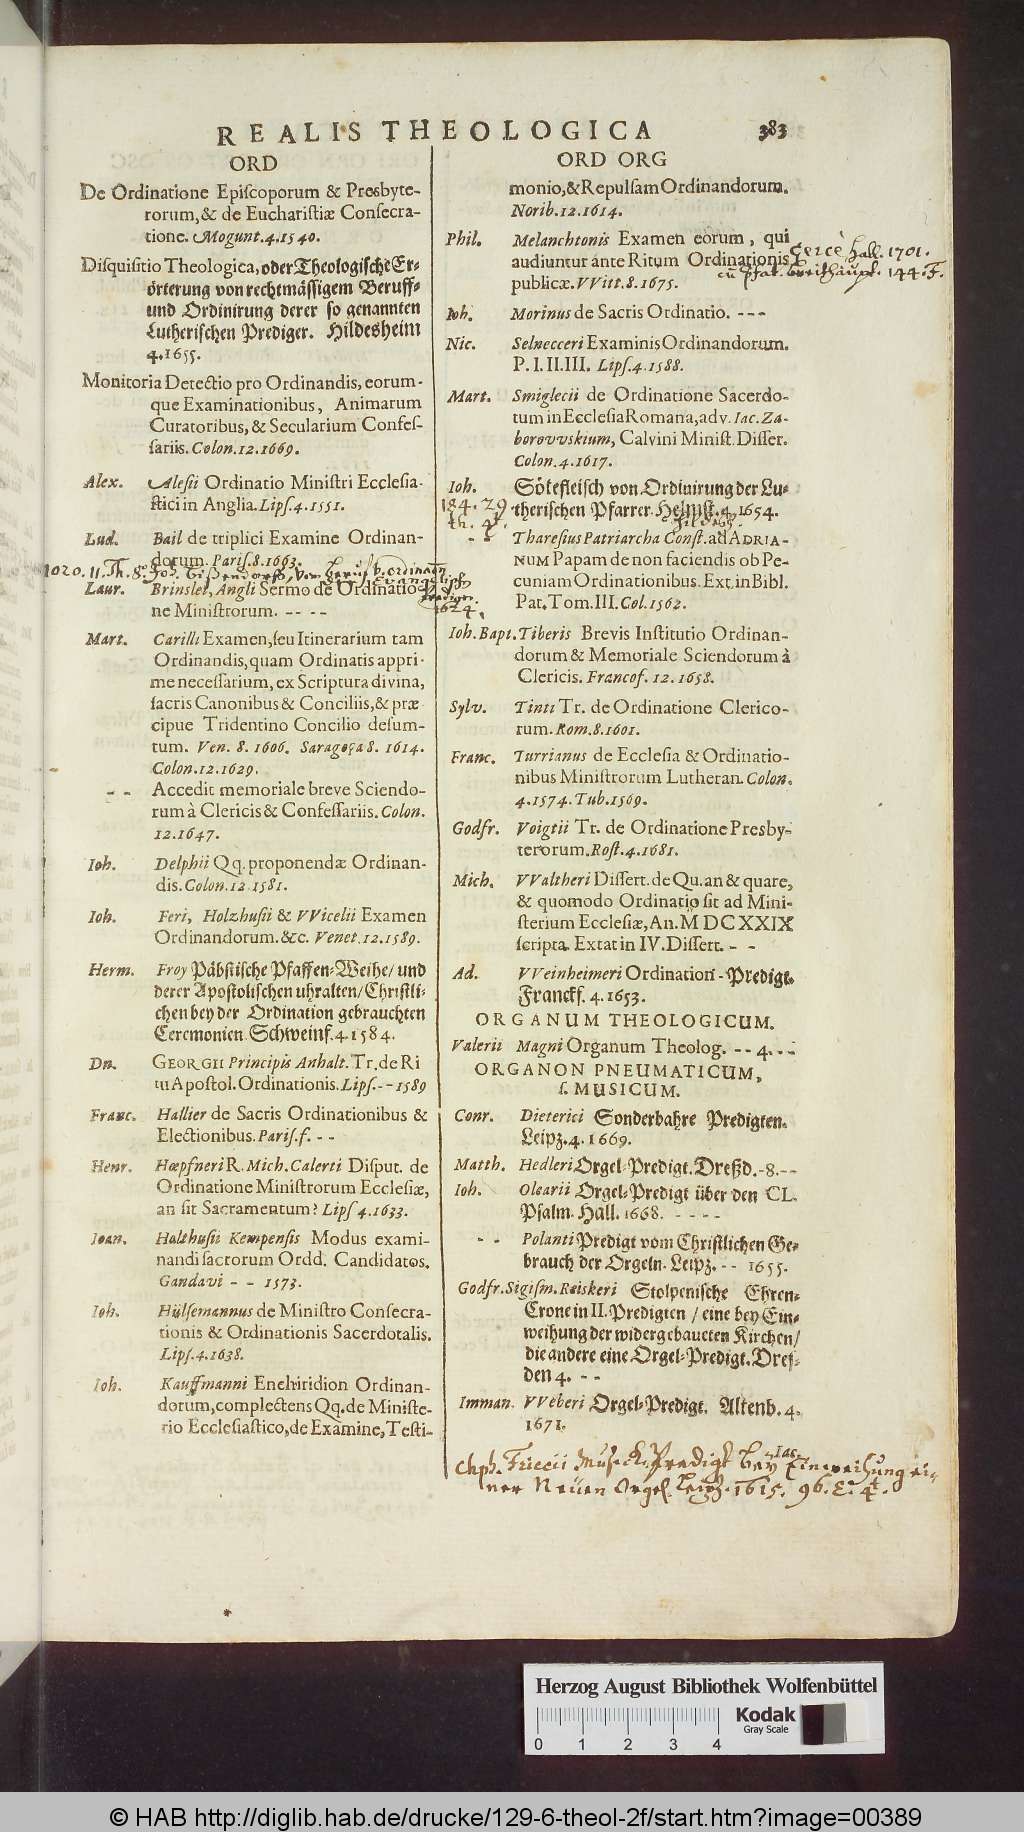 REALIS THEOLOGICA 383
ORD
De Ordinatione Epiſcoporum & Presbyte-
rorum, & de Euchariſtiæ Conſecra-
tione. Mogunt. 4. 1540.
Diſquiſitio Theologica, oder Theologiſche Er-
örterung von rechtmäſſigem Beruff-
und Ordinirung derer ſo genannten
Lutheriſchen Prediger. Hildesheim
4. 1655.
Monitoria Detectio pro Ordinandis, eorum-
que Examinationibus, Animarum
Curatoribus, & Secularium Confeſ-
ſariis. Colon. 12. 1669.
Alex. Aleſii Ordinatio Miniſtri Eccleſia-
ſtici in Anglia. Lipſ. 4. 1551.
Lud. Bail de triplici Examine Ordinan-
dorum. Pariſ. 8. 1663.
1020. 11. Th. 8. Joh. Bißendorfs, vom beruf b. ordinat
Evangeliſch
Prediger
1624.
Laur. Brinsley, Angli Sermo de Ordinatio-
ne Miniſtrorum. - - - -
Mart. Carilli Examen, ſeu Itinerarium tam
Ordinandis, quam Ordinatis appri-
me neceſſarium, ex Scriptura divina,
ſacris Canonibus & Conciliis, & præ
cipue Tridentino Concilio deſum-
tum. Ven. 8. 1606. Saragoça 8. 1614.
Colon. 12. 1629.
- - Accedit memoriale breve Sciendo-
rum à Clericis & Confeſſariis. Colon.
12. 1647.
Ioh. Delphii Qq. proponendæ Ordinan-
dis. Colon. 12 1581.
Ioh. Feri, Holzhuſii & VVicelii Examen
Ordinandorum. &c. Venet. 12. 1589.
Herm. Froy Päbſtiſche Pfaffen-Weihe / und
derer Apoſtoliſchen uhralten / Chriſtli-
chen bey der Ordination gebrauchten
Ceremonien Schweinf. 4. 1584.
Dn. GEORGII Principis Anhalt. Tr. de Ri
tu Apoſtol. Ordinationis. Lipſ. - - 1589
Franc. Hallier de Sacris Ordinationibus &
Electionibus. Pariſ. f. - -
Henr. Hœpfneri R. Mich. Calerti Diſput. de
Ordinatione Miniſtrorum Eccleſiæ,
an ſit Sacramentum? Lipſ 4. 1633.
Ioan. Holthuſii Kempenſis Modus exami-
nandi ſacrorum Ordd. Candidatos.
Gandavi - - 1573.
Ioh. Hülſemannus de Miniſtro Conſecra-
tionis & Ordinationis Sacerdotalis.
Lipſ. 4. 1638.
Ioh. Kauffmanni Enchiridion Ordinan-
dorum, complectens Qq. de Miniſte-
rio Eccleſiaſtico, de Examine, Teſti-
ORD ORG
monio, & Repulſam Ordinandorum.
Norib. 12. 1614.
Phil. Melanchtonis Examen eorum, qui
audiuntur ante Ritum Ordinationis
publicæ. VVitt. 8. 1675.
Hall. 1701.
144. F.
Ioh. Morinus de Sacris Ordinatio. - - -
Nic. Selnecceri Examinis Ordinandorum.
P. I. II. III. Lipſ. 4. 1588.
Mart. Smiglecii de Ordinatione Sacerdo-
tum in Eccleſia Romana, adv. Iac. Za-
borovvskium, Calvini Miniſt. Diſſer.
Colon. 4. 1617.
Ioh. Sötefleiſch von Ordinirung der Lu-
theriſchen Pfarrer. Helmſt. 4. 1654.
184. 29.
Th. 4.
- - Thareſius Patriarcha Conſt. ad ADRIA-
NUM Papam de non faciendis ob Pe-
cuniam Ordinationibus. Ext. in Bibl.
Pat. Tom. III. Col. 1562.
Ioh. Bapt. Tiberis Brevis Inſtitutio Ordinan-
dorum & Memoriale Sciendorum à
Clericis. Francof. 12. 1658.
Sylv. Tinti Tr. de Ordinatione Clerico-
rum. Rom. 8. 1601.
Franc. Turrianus de Eccleſia & Ordinatio-
nibus Miniſtrorum Lutheran. Colon.
4. 1574. Tub. 1569.
Godfr. Voigtii Tr. de Ordinatione Presby-
terorum. Roſt. 4. 1681.
Mich. VValtheri Diſſert. de Qu. an & quare,
& quomodo Ordinatio ſit ad Mini-
ſterium Eccleſiæ, An. M DC XXIX
ſcripta. Extat in IV. Diſſert. - -
Ad. VVeinheimeri Ordination-Predigt.
Franckf. 4. 1653.
ORGANUM THEOLOGICUM.
Valerii Magni Organum Theolog. - - 4. - -
ORGANON PNEUMATICUM,
ſ. MUSICUM.
Conr. Dieterici Sonderbahre Predigten.
Leipz. 4. 1669.
Matth. Hedleri Orgel-Predigt. Dreßd. - 8. - -
Ioh. Olearii Orgel-Predigt über den CL.
Pſalm. Hall. 1668. - - - -
- - Polanti Predigt vom Chriſtlichen Ge-
brauch der Orgeln. Leipz. - - 1655.
Godfr. Sigiſm. Reiskeri Stolpeniſche Ehren-
Crone in II. Predigten / eine bey Ein-
weihung der widergebaueten Kirchen /
die andere eine Orgel-Predigt. Dreſ-
den 4. - -
Imman. VVeberi Orgel-Predigt. Altenb. 4.
1671.
Chph. Friccii Muſick-Predigt bey Einweihung ei-
ner Neuen Orgel Leipz. 1615. 96. 4.
Herzog August Bibliothek Wolfenbüttel
Kodak
Gray Scale
0 1 2 3 4
© HAB http://diglib.hab.de/drucke/129-6-theol-2f/start.htm?image=00389